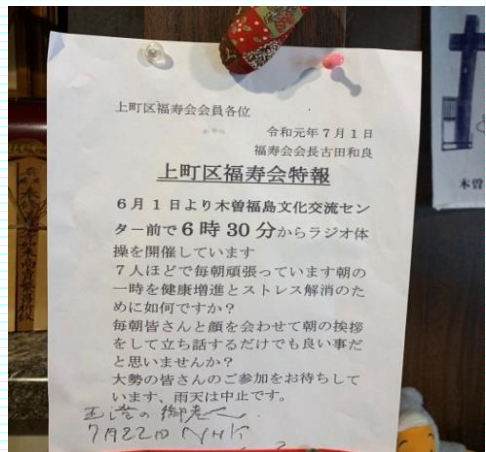 上町区福寿会会員各位
令和元年7月1日
福寿会会長古田和良
上町区福寿会特報
6月1日より木曽福島文化交流セン
ター前で6時30分からラジオ体
操を開催しています
7人ほどで毎朝頑張っています朝の
一時を健康増進とストレス解消のた
めに如何ですか?
毎朝皆さんと顔を会わせて朝の挨拶
をして立ち話するだけでも良い事だ
と思いませんか?
大勢の皆さんのご参加をお待ちして
います、雨天は中止です。
7月22日 NHK
木曽